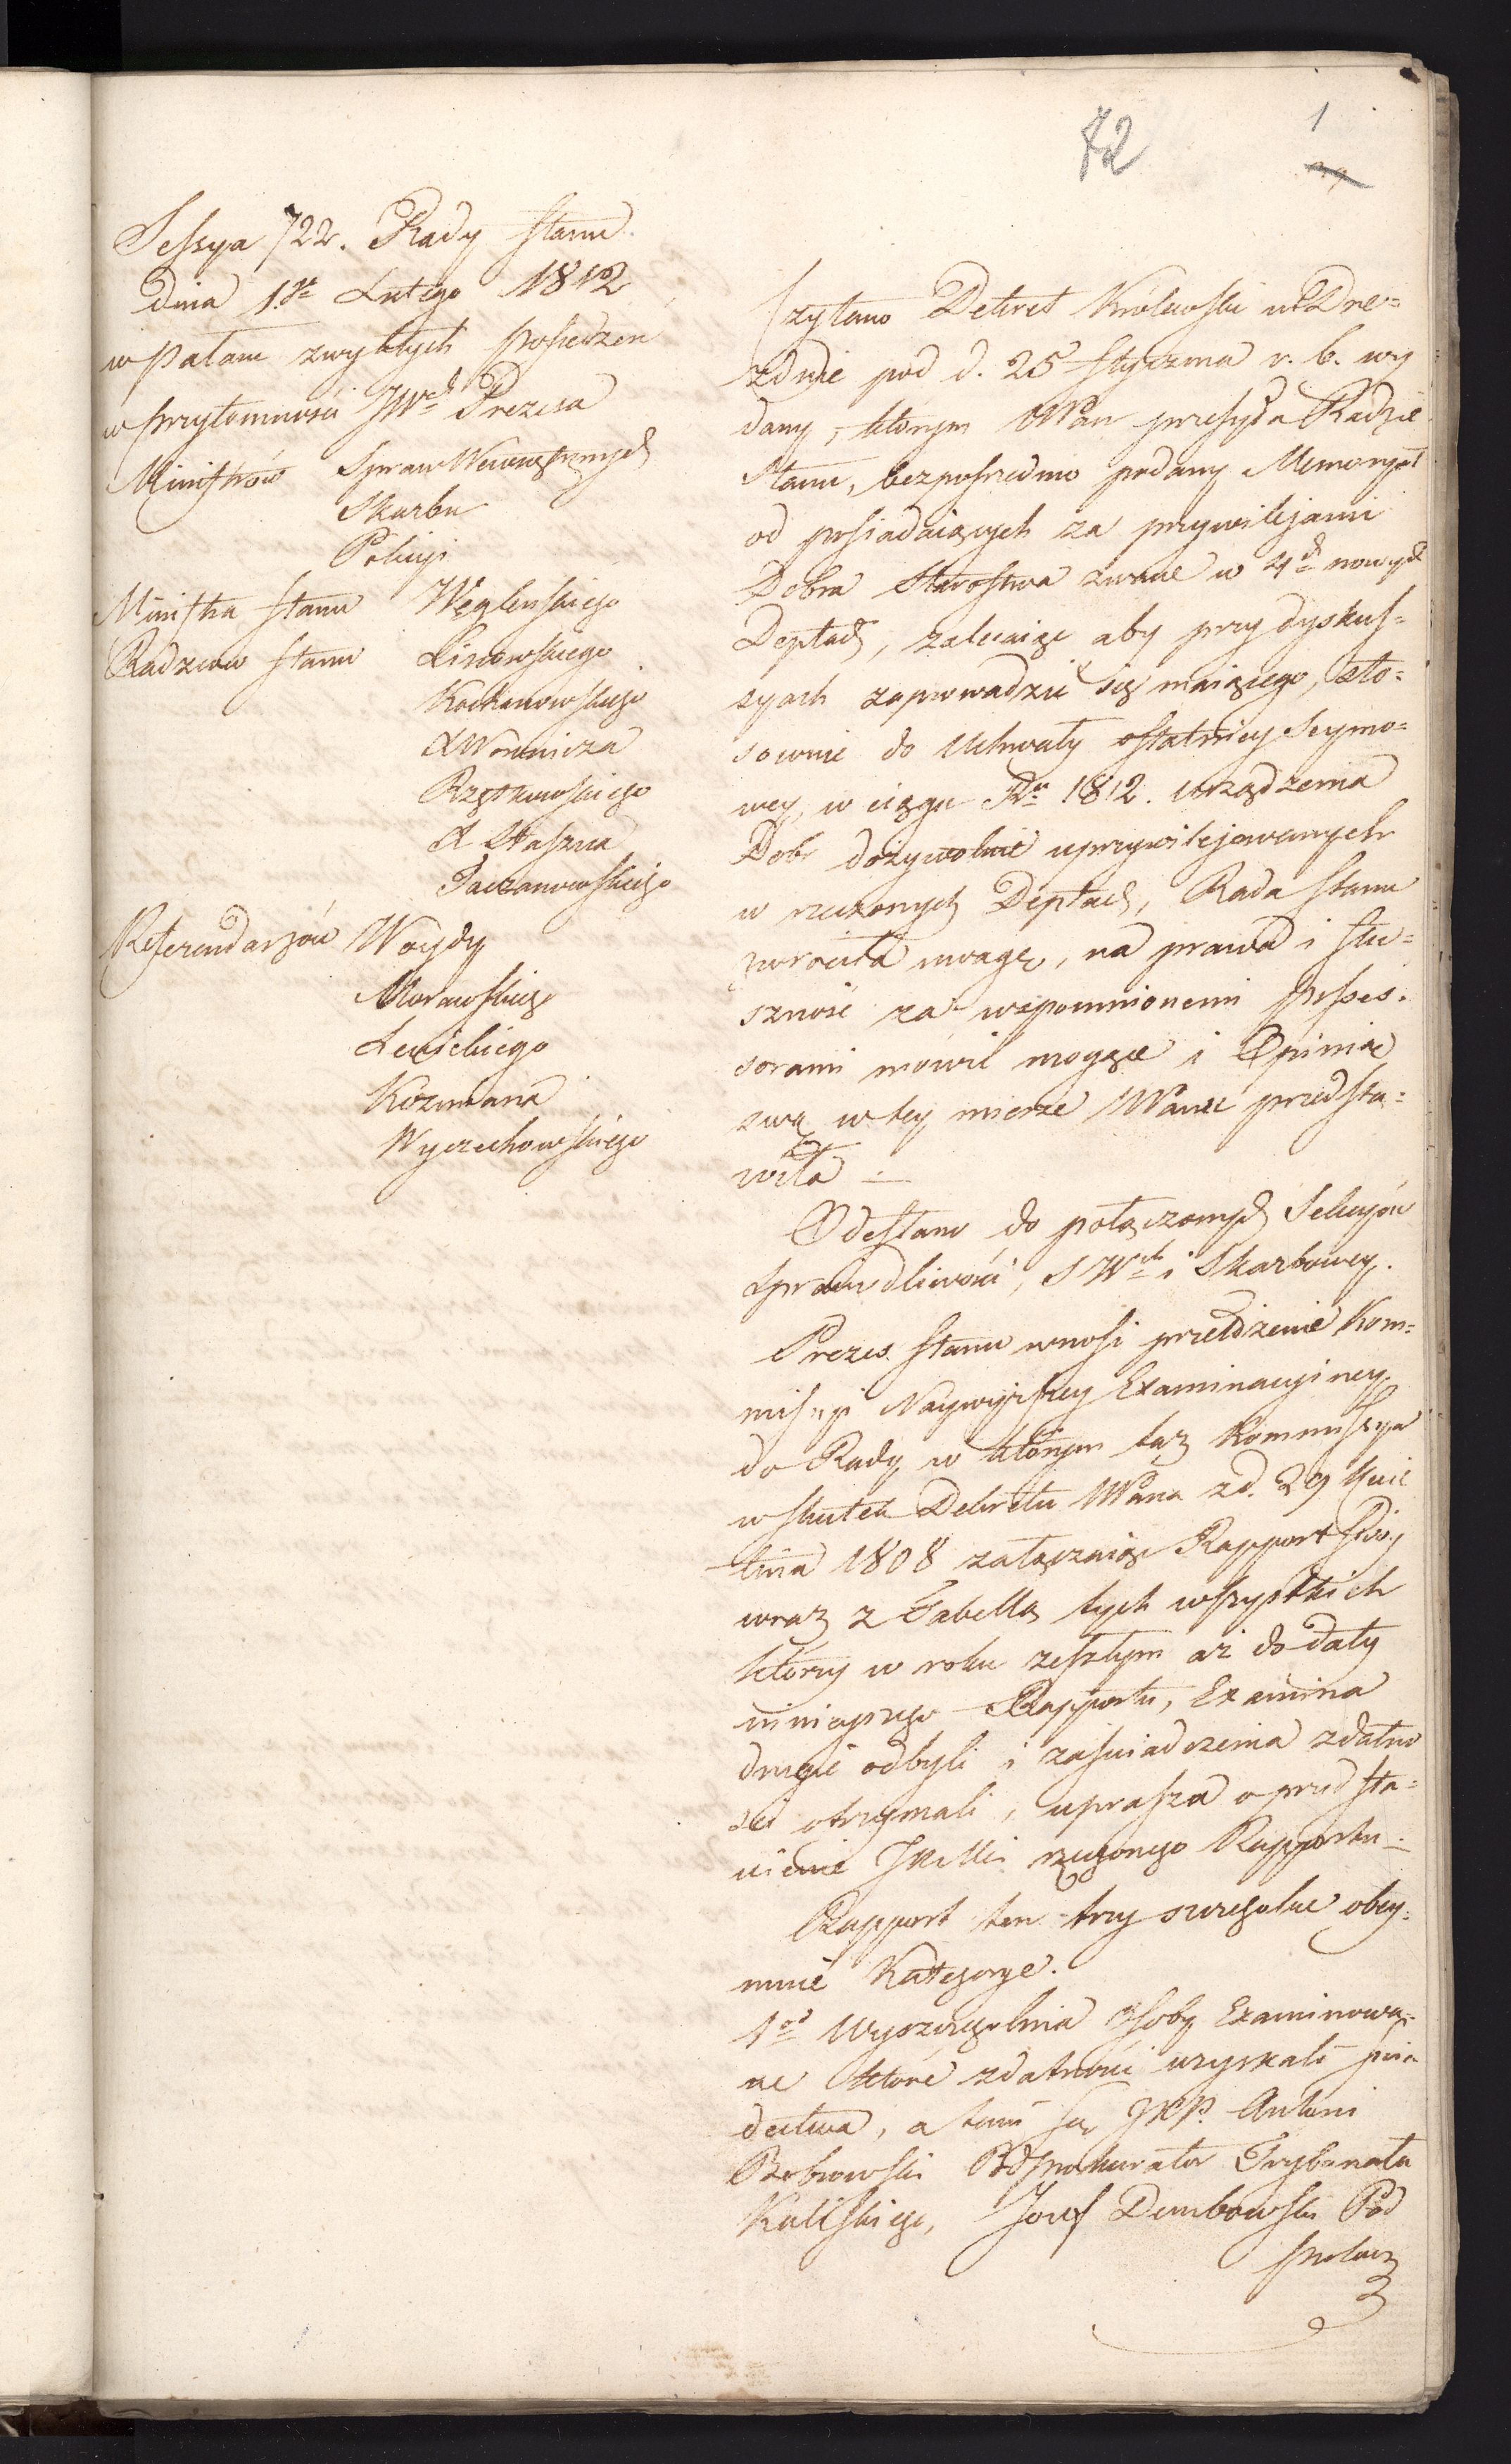 72
1
Sessya 722. Rady Stanu
dnia 1.go Lutego 1812
w Pałacu zwykłych posiedzeń
w przytomności JWch Prezesa
Ministrów Spraw Wewnętrznych
Skarbu
Policyi
Ministra Stanu Węglenskiego
Radzców Stanu Linowskiego
Kochanowskiego
X Woronicza
Rzętkowskiego
X Staszica
Taczanowskiego
Referendarzów Woydy
Morawskiego
Lewickiego
Kozmiana
Wyczechowskiego
Czytano Dekret Królewski w Dre=
zdnie pod d. 25 Stycznia r. b. wy
dany, którym NPan przesyła Radzie
Stanu, bezpośrednio podany Memoryał
od posiadaiących za przywilejami
Dobra Starostwa zwane w 4ch nowych
Deptach, zalecaiąc aby przy dyskus=
syach zaprowadzić się maiącego, sto=
sownie do Uchwały ostatniey Seymo=
wey, w ciągu Rku 1812. urządzenia
Dobr dożywotnie uprzywilejowanych
w rzeczonych Deptach, Rada Stanu
zwrociła uwagę, na prawa i słu=
szność za wspomnionemi posses=
sorami mówić mogące i Opinią
swą w tey mierze NPanu przedsta=
wiła
Odesłano do połączonych Sekcyów
Sprawiedliwości, S Wch i Skarbowey.
Prezes Stanu wnosi przełożenie Kom=
missyi Naywyższey Examinacyiney
do Rady w którym taż Kommissya
w skutek Dekretu NPana z d. 29 Kwie
tnia 1808 załączaiąc Rapport swóy
wraz z Tabellą tych wszystkich
którzy w roku zeszłym aż do daty
ninieyszego Rapportu, Examina
drugie odbyli i zaświadczenia zdatno
ści otrzymali, uprasza o przedsta=
wienie JKMci rzeczonego Rapportu
Rapport ten trzy szczegolne obey=
muie Kategorye.
1od Wyszczegolnia Osoby Examinowa=
ne które zdatności uzyskali świa
dectwa, a temi są JPP. Antoni
Bobrowski Podprokurator Trybunału
Kaliskiego, Jozef Dembowski Pod